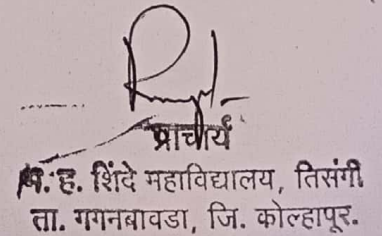 प्राचार्य
ह. शिंदे महाविद्यालय, तिसंगी
ता. गगनबावडा, जि. कोल्हापूर.